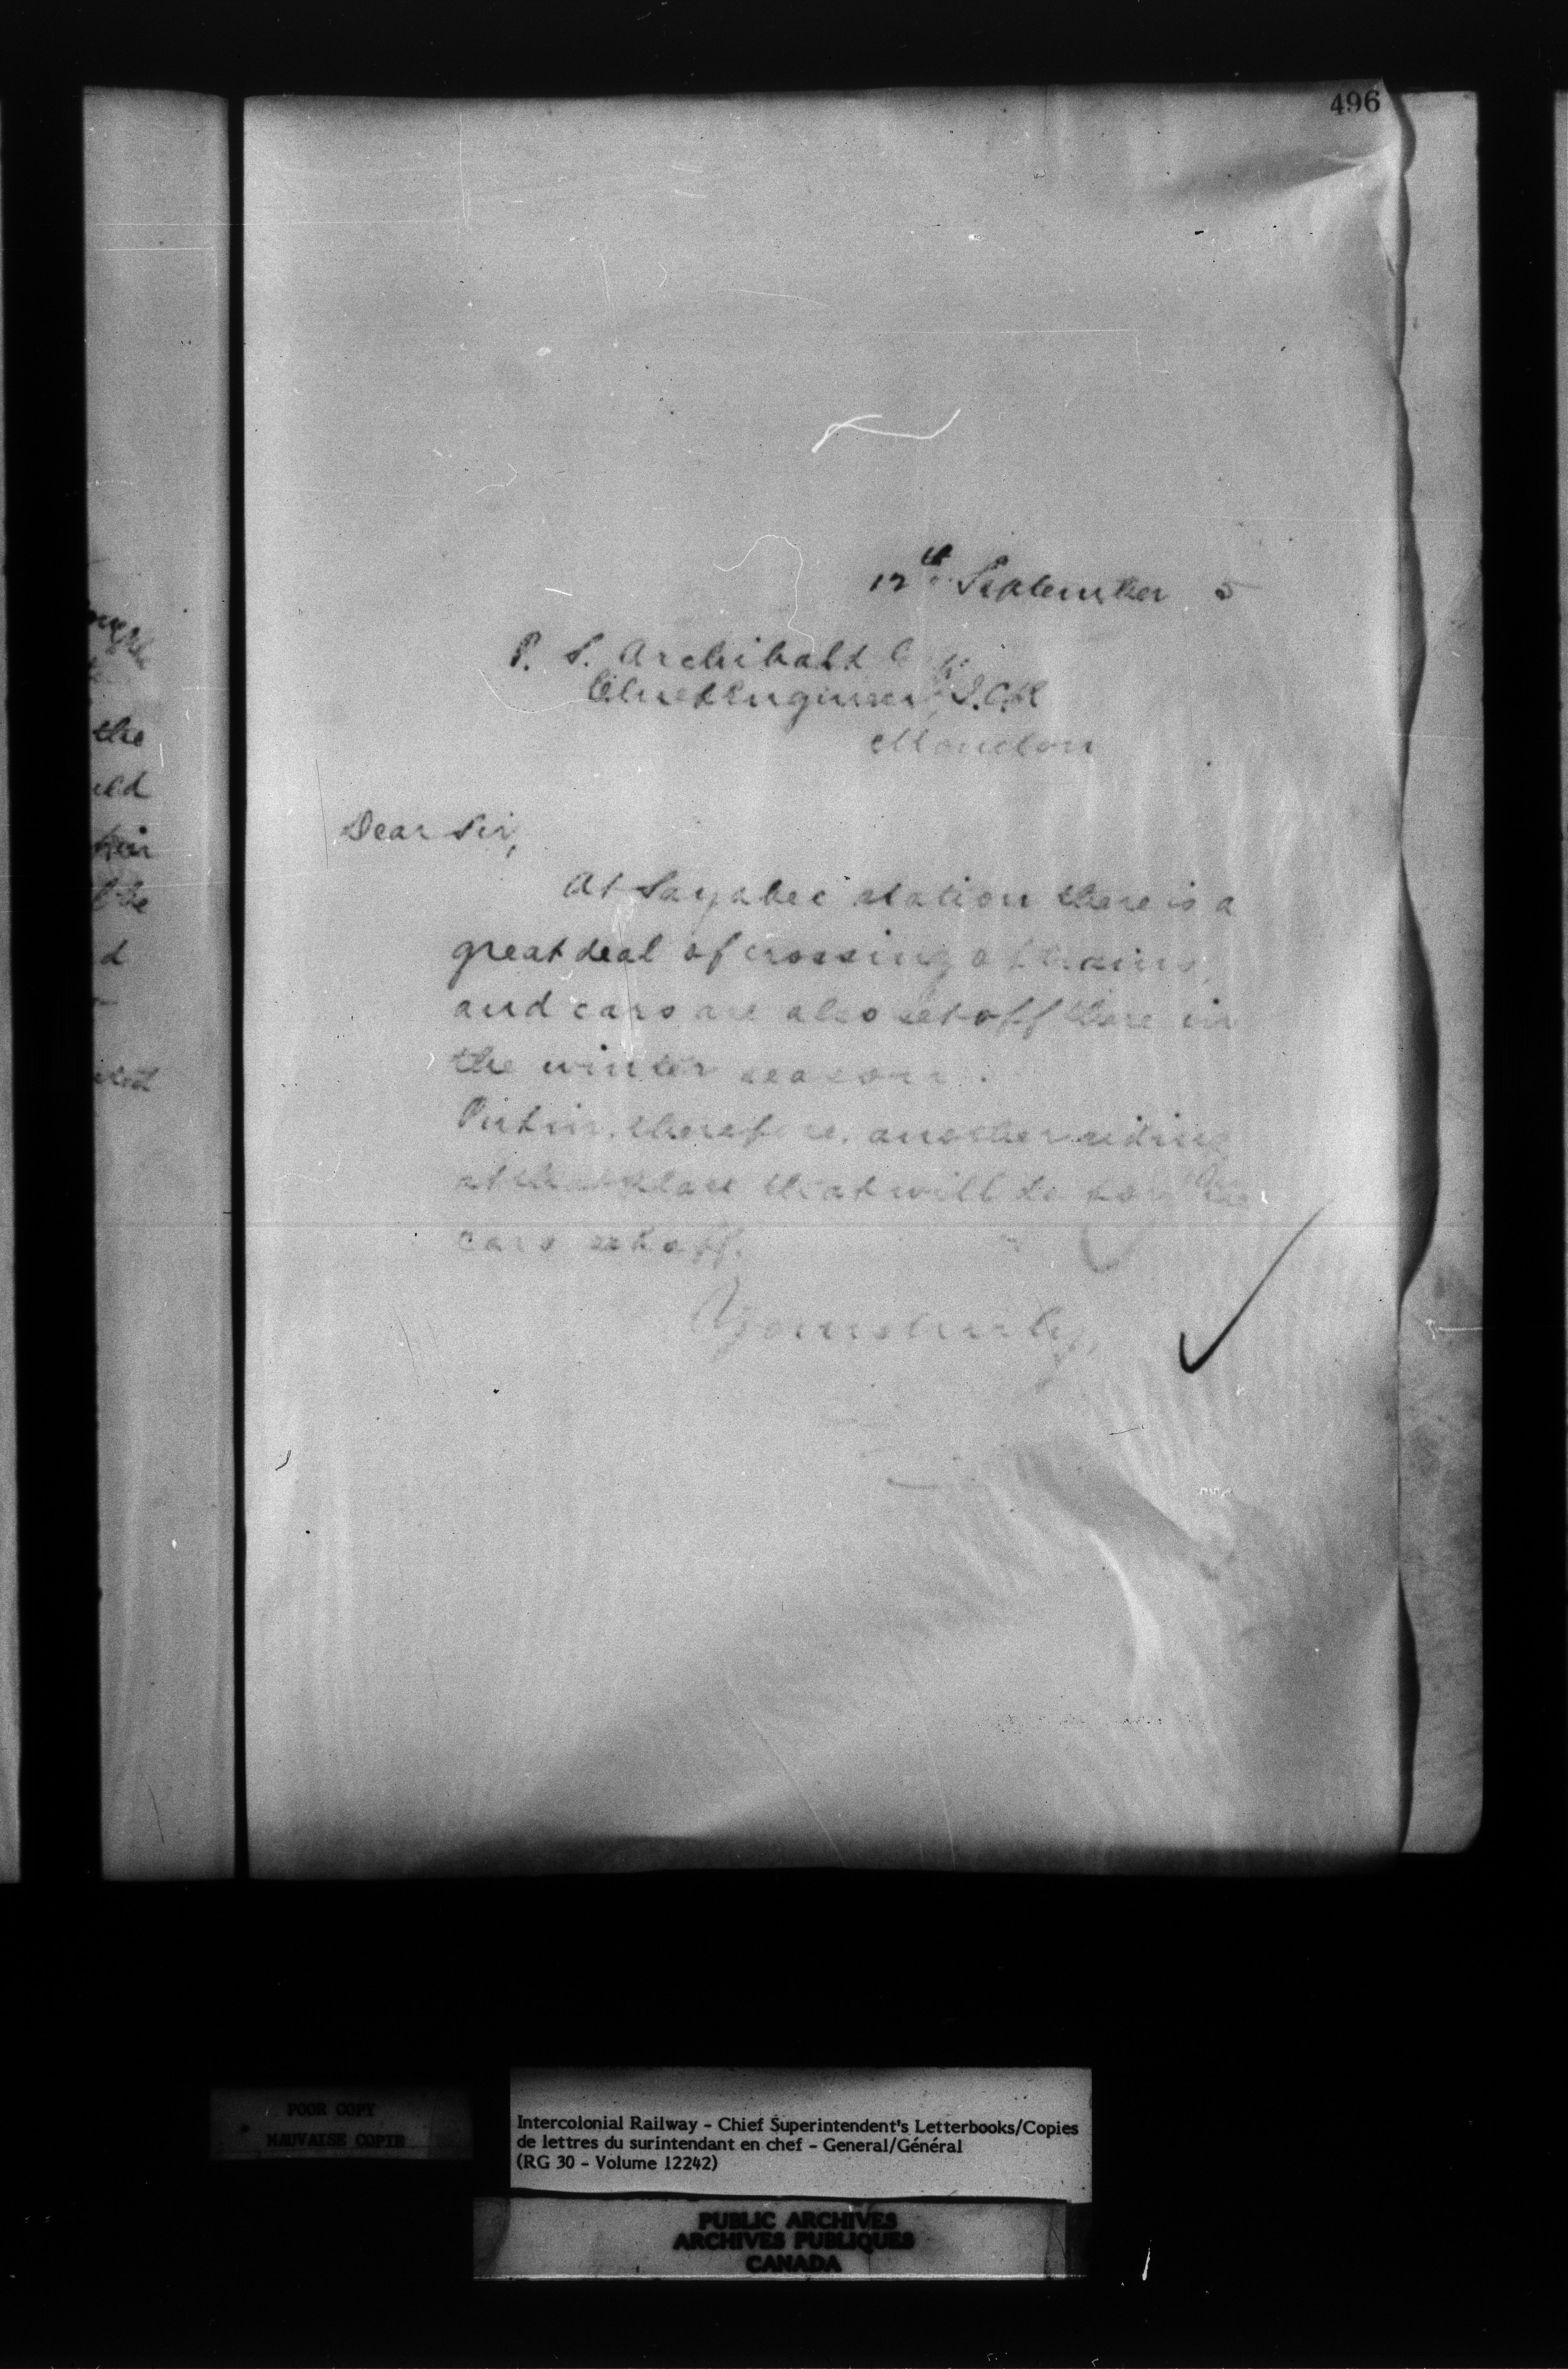 496
12th September 5
P. S. Archibald
Chief Engineer I.C.R
Moncton
Dear Sir,
At Sayabec station there is a
great deal of crossing of trains,
and cars are also set off there in
the winter season.
Put in, therefore, another siding
at that place that will do for the
cars set off.
Yours truly,
the
uld
d
POOR COPY
MAUVAISE COPIE
Intercolonial Railway - Chief Superintendent's Letterbooks/Copies
de lettres du surintendant en chef - General/Général
(RG 30 - Volume 12242)
PUBLIC ARCHIVES
ARCHIVES PUBLIQUES
CANADA